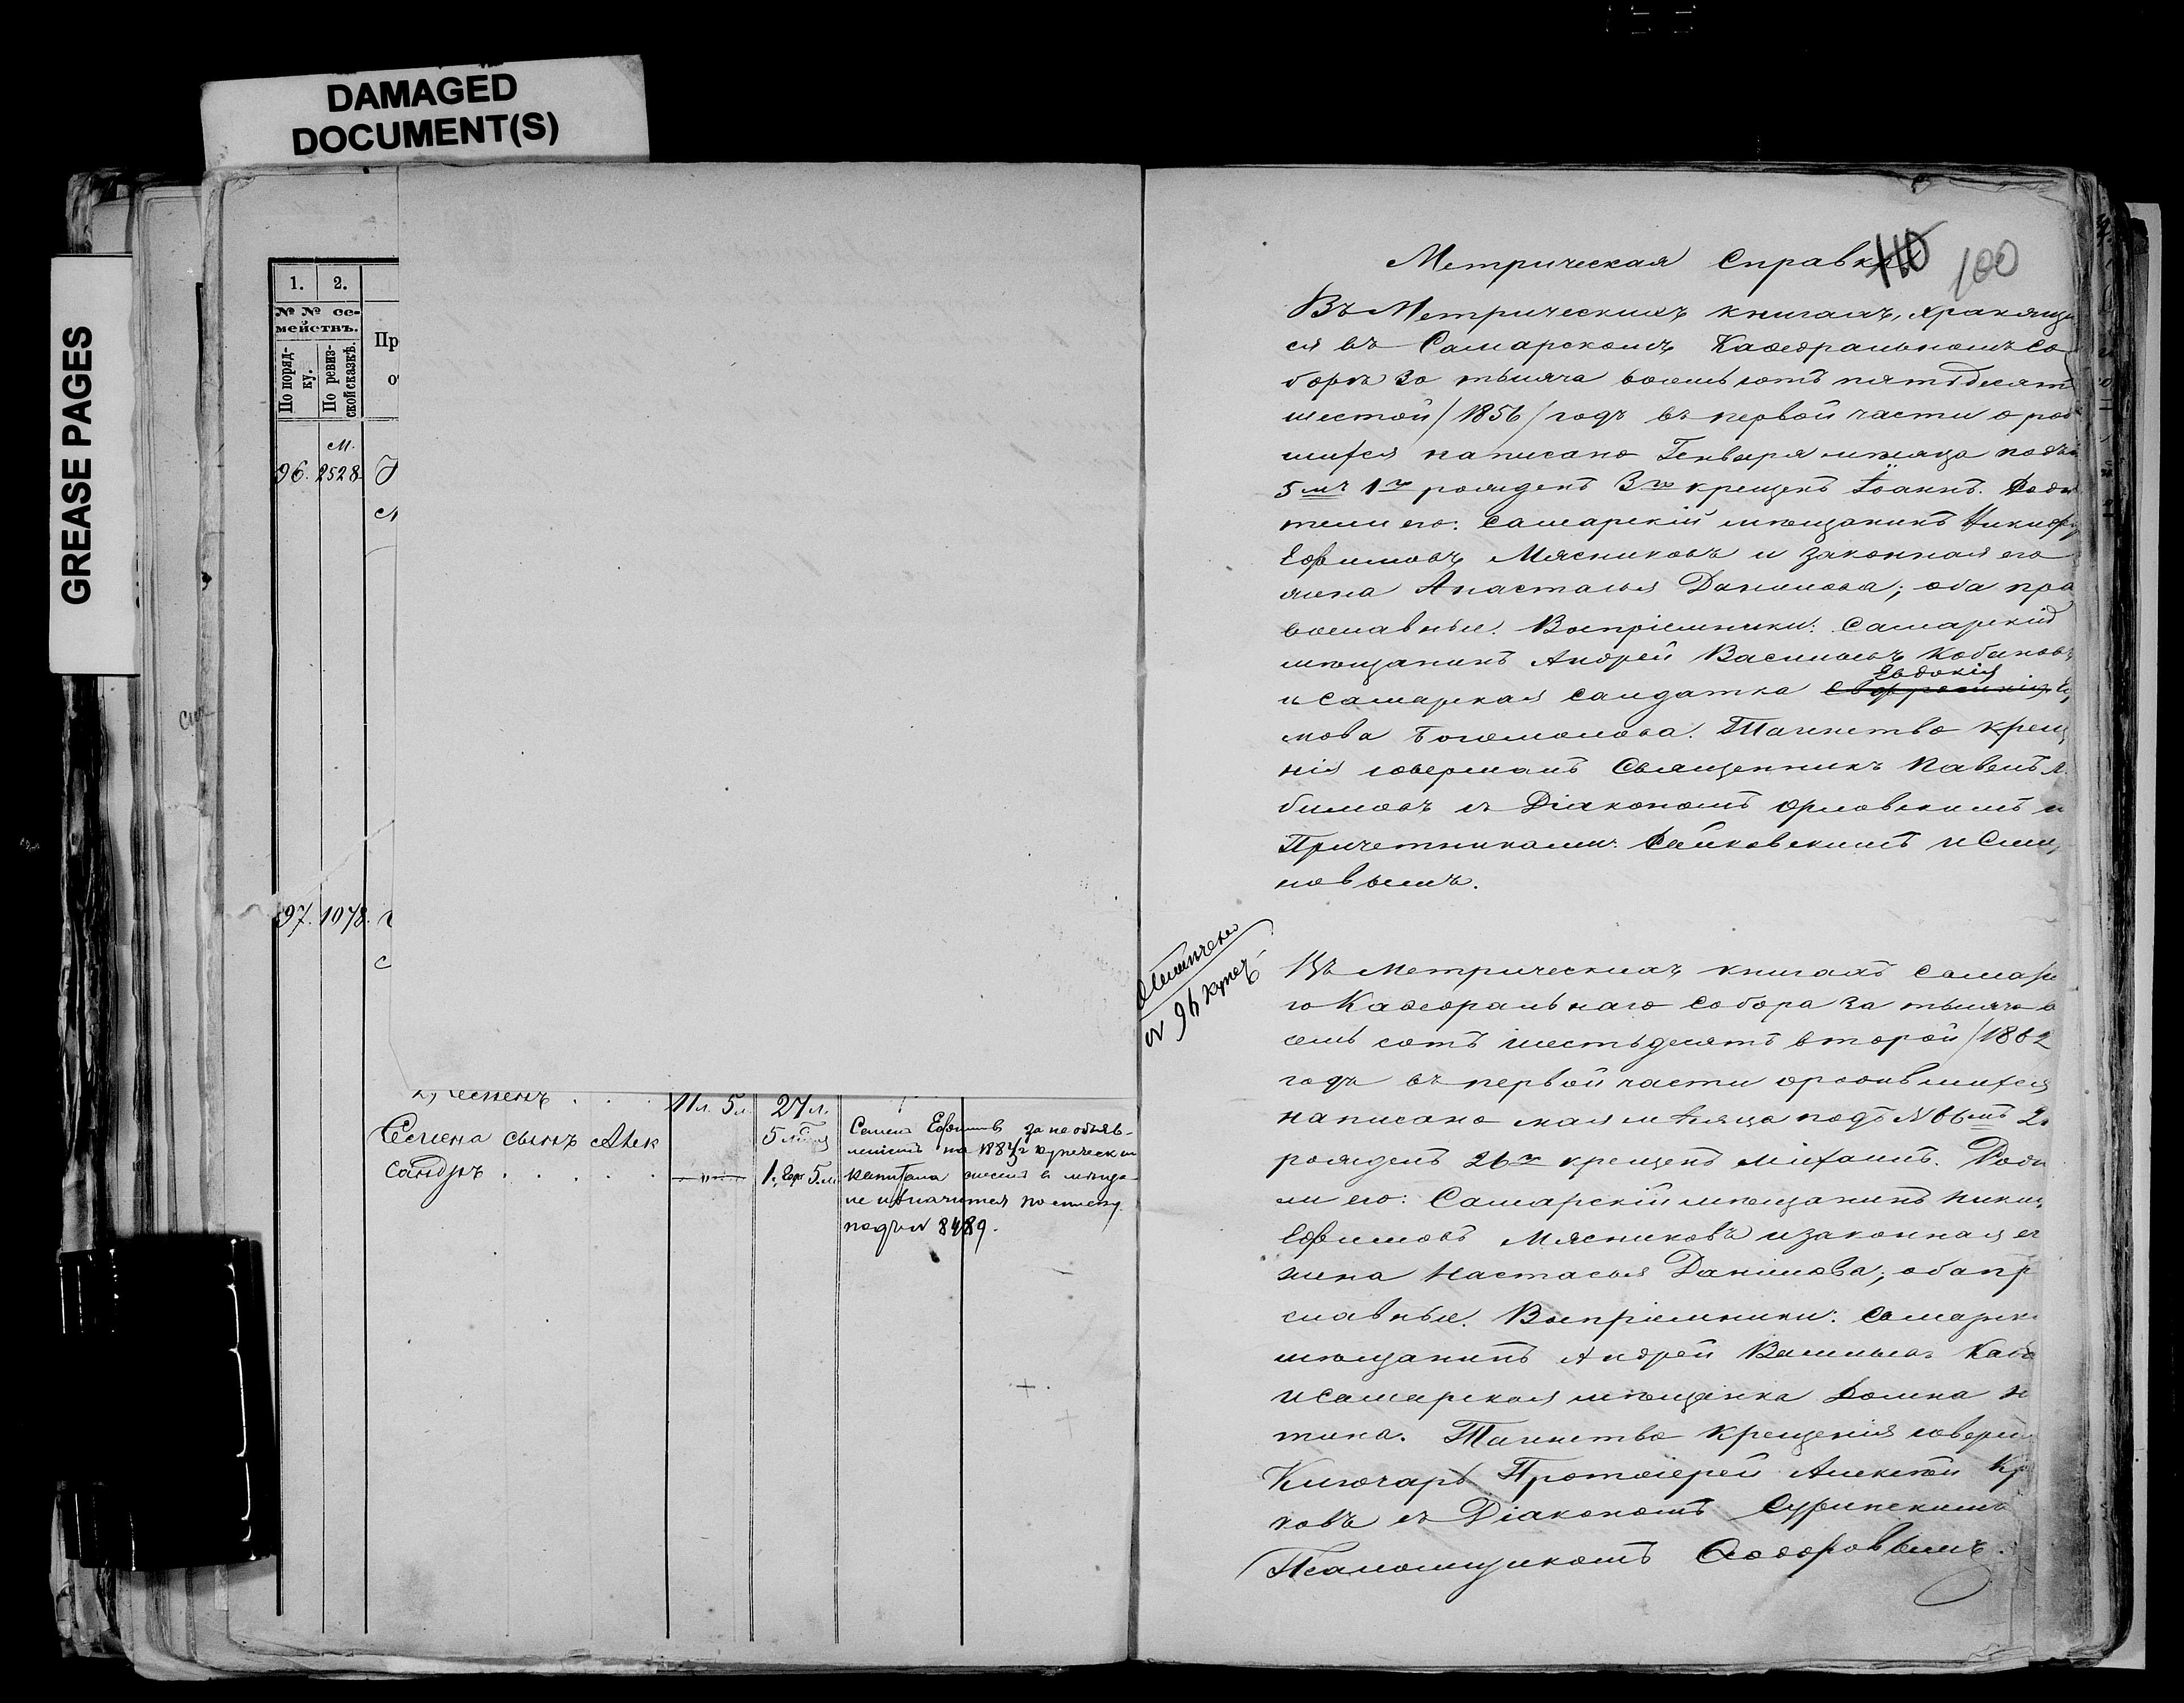 DAMAGED
DOCUMENT(S)
GREASE PAGES
1. 2.
№ № се-
мействъ.
По поряд-
ку.
По ревиз-
ской сказкѣ.
Пр
м.
96. 2528
97. 1078.
11 л. 5 27 л.
Семена сынъ Алек
сандръ . . . . .
5
1. 5 м
Семенъ Ефимовъ за необъяв-
леніемъ на купеческаго
капитала
не и значится
подъ № 8489.
Метрическая Справка
110 100
Въ Метрическихъ книгахъ, хранящи
ся въ Самарскомъ Каѳедральномъ Со
борѣ за тысяча восемь сотъ пятьдесят
шестой /1856/ годъ въ первой части о род
шихся написано Генваря мѣсяца подъ №
5 мъ 1го рожденъ 3го крещенъ Іоаннъ. Роди
тели его: Самарскій мѣщанинъ Никифор
Ефимовъ Мясниковъ и законная его
жена Анастасья Данилова; оба пра
вославные. Воспріемники: Самарскій
мѣщанинъ Андрей Васильевъ Кобановъ
Евдокія
и Самарская солдатка Е
мова Богомолова. Таинство крещ
нія совершалъ Священникъ Павелъ Л
бимовъ съ Діакономъ Орловскимъ и
Причетниками: и
новымъ.
Отмѣчено
№ 96 купеч
Въ Метрическихъ книгахъ Самарс
го Каѳедральнаго Собора за тысяча в
семь сотъ шестьдесятъ второй /1862
годъ въ первой части о родившихся
написано мая мѣсяца подъ № 66мъ 2
рожденъ 26го крещенъ Михаилъ. Роди
ли его: Самарскій мѣщанинъ Ники
Ефимовъ Мясниковъ и законная ег
жена Настасья Данилова; оба пр
славные. Воспріемники: Самарск
мѣщанинъ Андрей Васильевъ Каба
и Самарская мѣщанка Домна Н
тина. Таинство крещенія соверш
Ключарь Протоіерей Алексѣй Кр
ковъ съ Діакономъ Суринскимъ
Псаломщикомъ Ѳеодоровымъ.